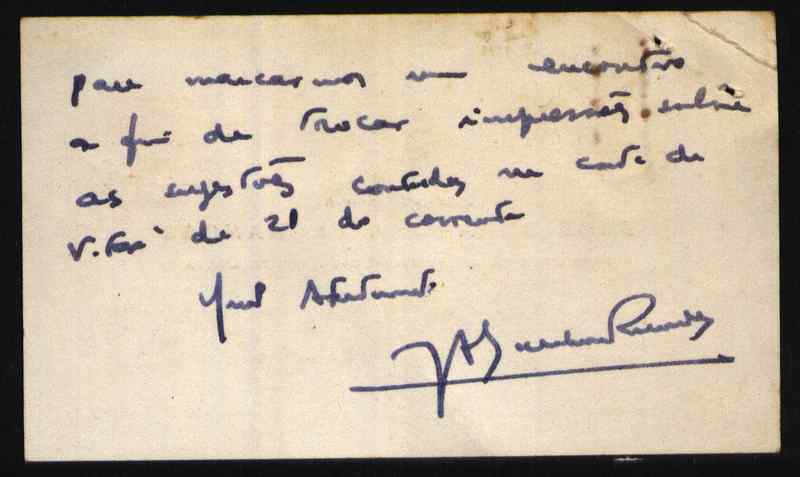 para marcarmos um encontro
a fim de trocar impressões sobre
as sugestões contidas na carta de
V. Exª de 21 do corrente
Atentamente